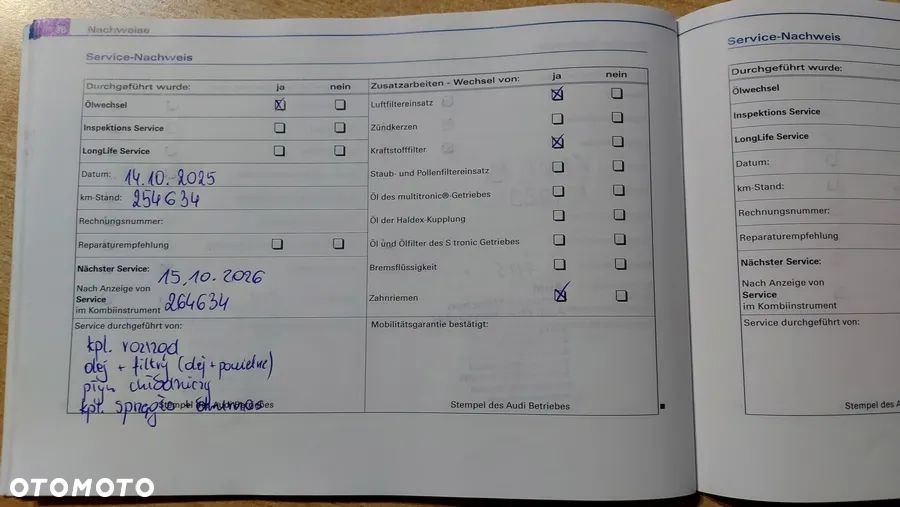 36 Nachweise
Service-Nachweis
Durchgeführt wurde: ja nein
Ölwechsel
Inspektions Service
LongLife Service
Datum: 14.10.2025
km-Stand: 254634
Rechnungsnummer:
Reparaturempfehlung
Nächster Service: 15.10.2026
Nach Anzeige von
Service 264634
im Kombiinstrument
Service durchgeführt von:
kpl. rozrząd
olej + filtry (olej + powietrze)
płyn chłodniczy
kpl. sprzęgło +
Stempel des Audi Betriebes
Zusatzarbeiten - Wechsel von: ja nein
Luftfiltereinsatz
Zündkerzen
Kraftstofffilter
Staub- und Pollenfiltereinsatz
Öl des multitronic®-Getriebes
Öl der Haldex-Kupplung
Öl und Ölfilter des S tronic Getriebes
Bremsflüssigkeit
Zahnriemen
Mobilitätsgarantie bestätigt:
Stempel des Audi Betriebes
Service-Nachweis
Durchgeführt wurde:
Ölwechsel
Inspektions Service
LongLife Service
Datum:
km-Stand:
Rechnungsnummer:
Reparaturempfehlung
Nächster Service:
Nach Anzeige von
Service
im Kombiinstrument
Service durchgeführt von:
Stempel des A
OTOMOTO